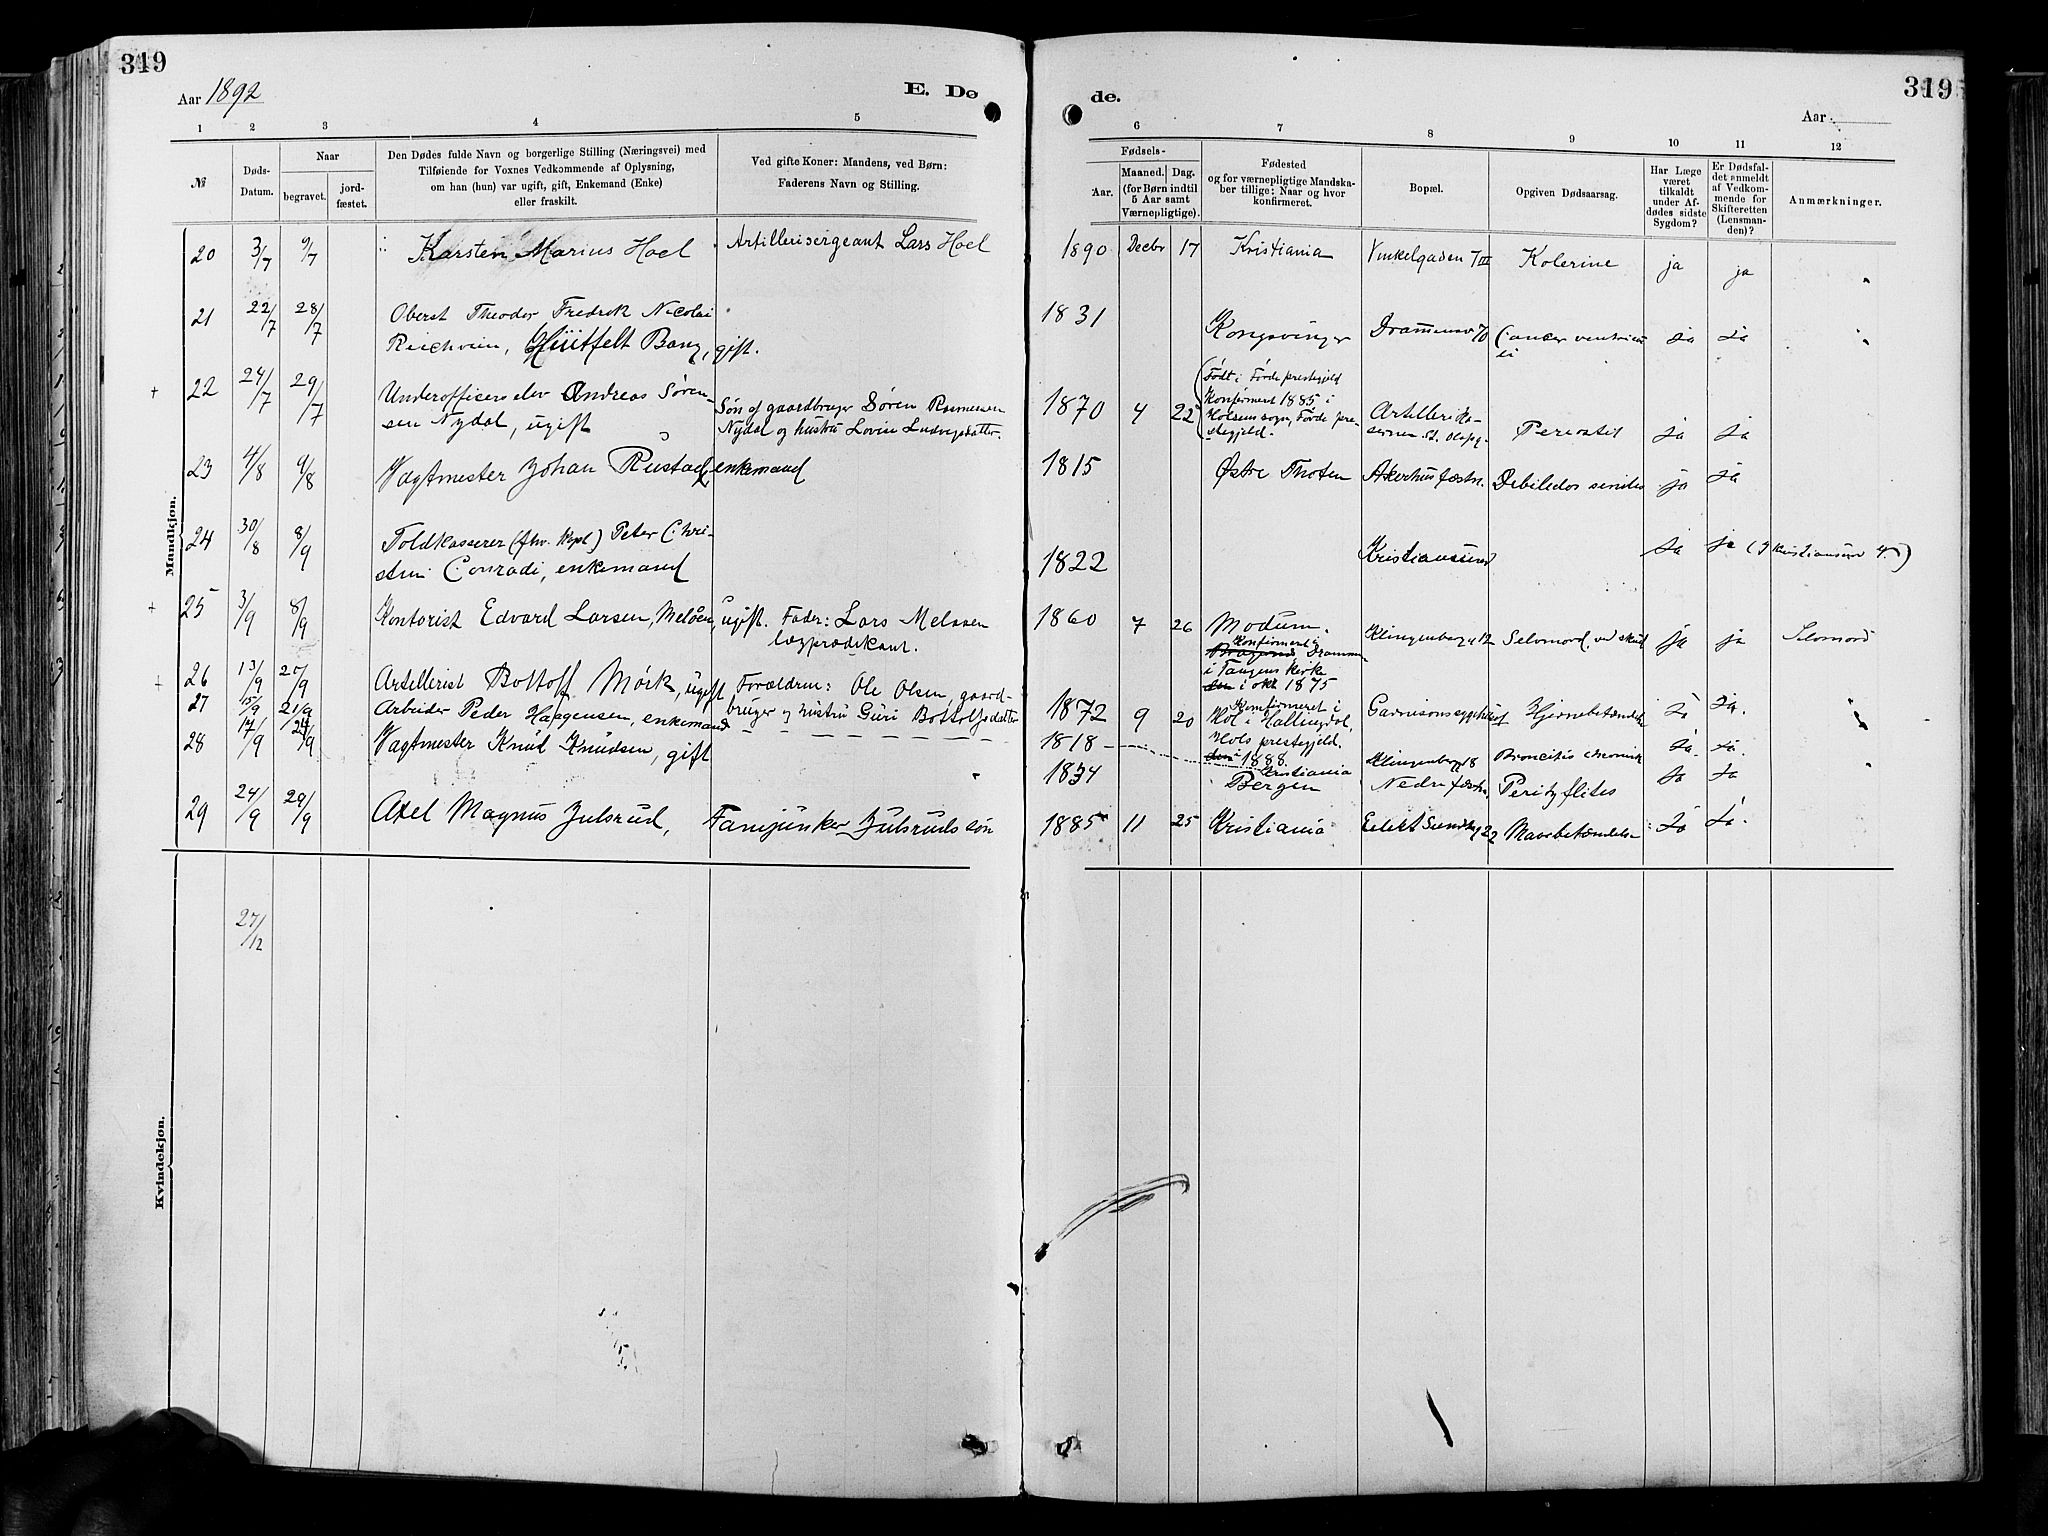 319
319
Aar 1892
E. Dø
de.
Aar
1 2 3 4 5
6 7 8 9 10 11 12
№
Døds-
Datum.
Naar
begravet.
jord-
fæstet.
Den Dødes fulde Navn og borgerlige Stilling (Næringsvei) med
Tilføiende for Voxnes Vedkommende af Oplysning,
om han (hun) var ugift, gift, Enkemand (Enke)
eller fraskilt.
Ved gifte Koner: Mandens, ved Børn:
Faderens Navn og Stilling.
Fødsels-
Aar.
Maaned. Dag.
(for Børn indtil
5 Aar samt
Værnepligtige).
Fødested
og for værnepligtige Mandska-
ber tillige: Naar og hvor
konfirmeret.
Bopæl.
Opgiven Dødsaarsag.
Har Læge
været
tilkaldt
under Af-
dødes sidste
Sygdom?
Er Dødsfal-
det anmeldt
af Vedkom-
mende for
Skifteretten
(Lensman-
den)?
Anmærkninger.
Mandkjøn.
20 3/7 9/7 Karsten Marius Hoel Artillerisergeant Lars Hoel 1890 Decbr 17 Kristiania Vinkelgaden 7 III Kolerine ja ja
21 22/7 28/7 Oberst Theodor Fredrik Nicolai 1831
Reichwein, Huitfelt Bang, gift. Kongsvinger Drammensv 70 Cancer ventricu Ja Ja
li
22 24/7 29/7 Underofficerselev Andreas Søren-
sen Nydal, ugift
Søn af gaardbruger Søren Rasmussen
Nydal og hustru Lovise Ludvigsdatter.
1870 4 22
Født i Førde prestegjeld
Konfirmeret 1885 i
Holsens sogn, Førde pre-
stegjeld.
Artillerika-
sernen St. Olafsg.
Periostit ja ja
23 4/8 9/8 Vagtmester Johan Rustad, enkemand 1815 Østre Thoten Akershus fæstn. Debilitas senilis ja ja
24 30/8 8/9 Toldkasserer (fhv. kapt) Peter Chri-
stian Conradi, enkemand 1822 Kristianssund Ja ja
25 3/9 8/9 Kontorist Edvard Larsen, Melsen, ugift. Fader: Lars Melsen
lægprædikant.
1860 7 26 Modum.
Konfirmeret i
Bragernes Drammen
i Tangens kirke
den i okt 1875
Klingenbergg 12 Selvmord, ved skud ja ja Selvmord
26 13/9 20/9 Artillerist Bottolf Mørk, ugift Forældren: Ole Olsen, gaard-
bruger og hustru Guri Bottolfsdatter
1872 9 20
Konfirmeret i
Hol i Hallingdal,
Hols prestegjeld.
den i 1888.
Garnisonssygehuset Hjernebetændelse Ja Ja.
27 15/9 21/9 Arbeider Peder Haagensen, enkemand 1818 Kristiania Klingenbergg 18 Broncitis chronica Ja Ja.
28 17/9 24/9 Vagtmester Knud Knudsen, gift 1834 Bergen Nedre fæstn. Perityflitis Ja Ja
29 24/9 29/9 Axel Magnus Julsrud, Fanejunker Julsruds søn 1885 11 25 Kristiania Eilert Sundtsg 22 Mavebetændelse Ja Ja.
27/12
Kvindekjøn.